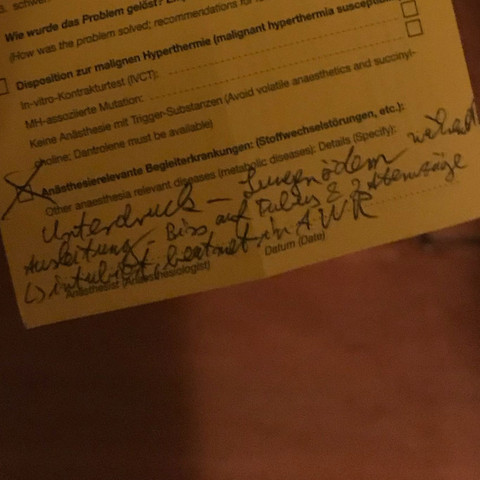 5. schwer
Wie wurde das Problem gelöst?
(How was the problem solved; recommendations for
Disposition zur malignen Hyperthermie (malignant hyperthermia
In-vitro-Kontrakturtest (IVCT):
MH-assoziierte Mutation:
Keine Anästhesie mit Trigger-Substanzen (Avoid volatile anaesthetics and succinyl-
choline; Dantrolene must be available)
Anästhesierelevante Begleiterkrankungen: (Stoffwechselstörungen, etc.):
Other anaesthesia relevant diseases (metabolic diseases): Details (Specify):
Unterdruck - Lungenödem während
Ausleitung - Biss auf Tubus & 2 Atemzüge
↳ intubiert, beatmet in AWR
Anästhesist (Anaesthesiologist)
Datum (Date)